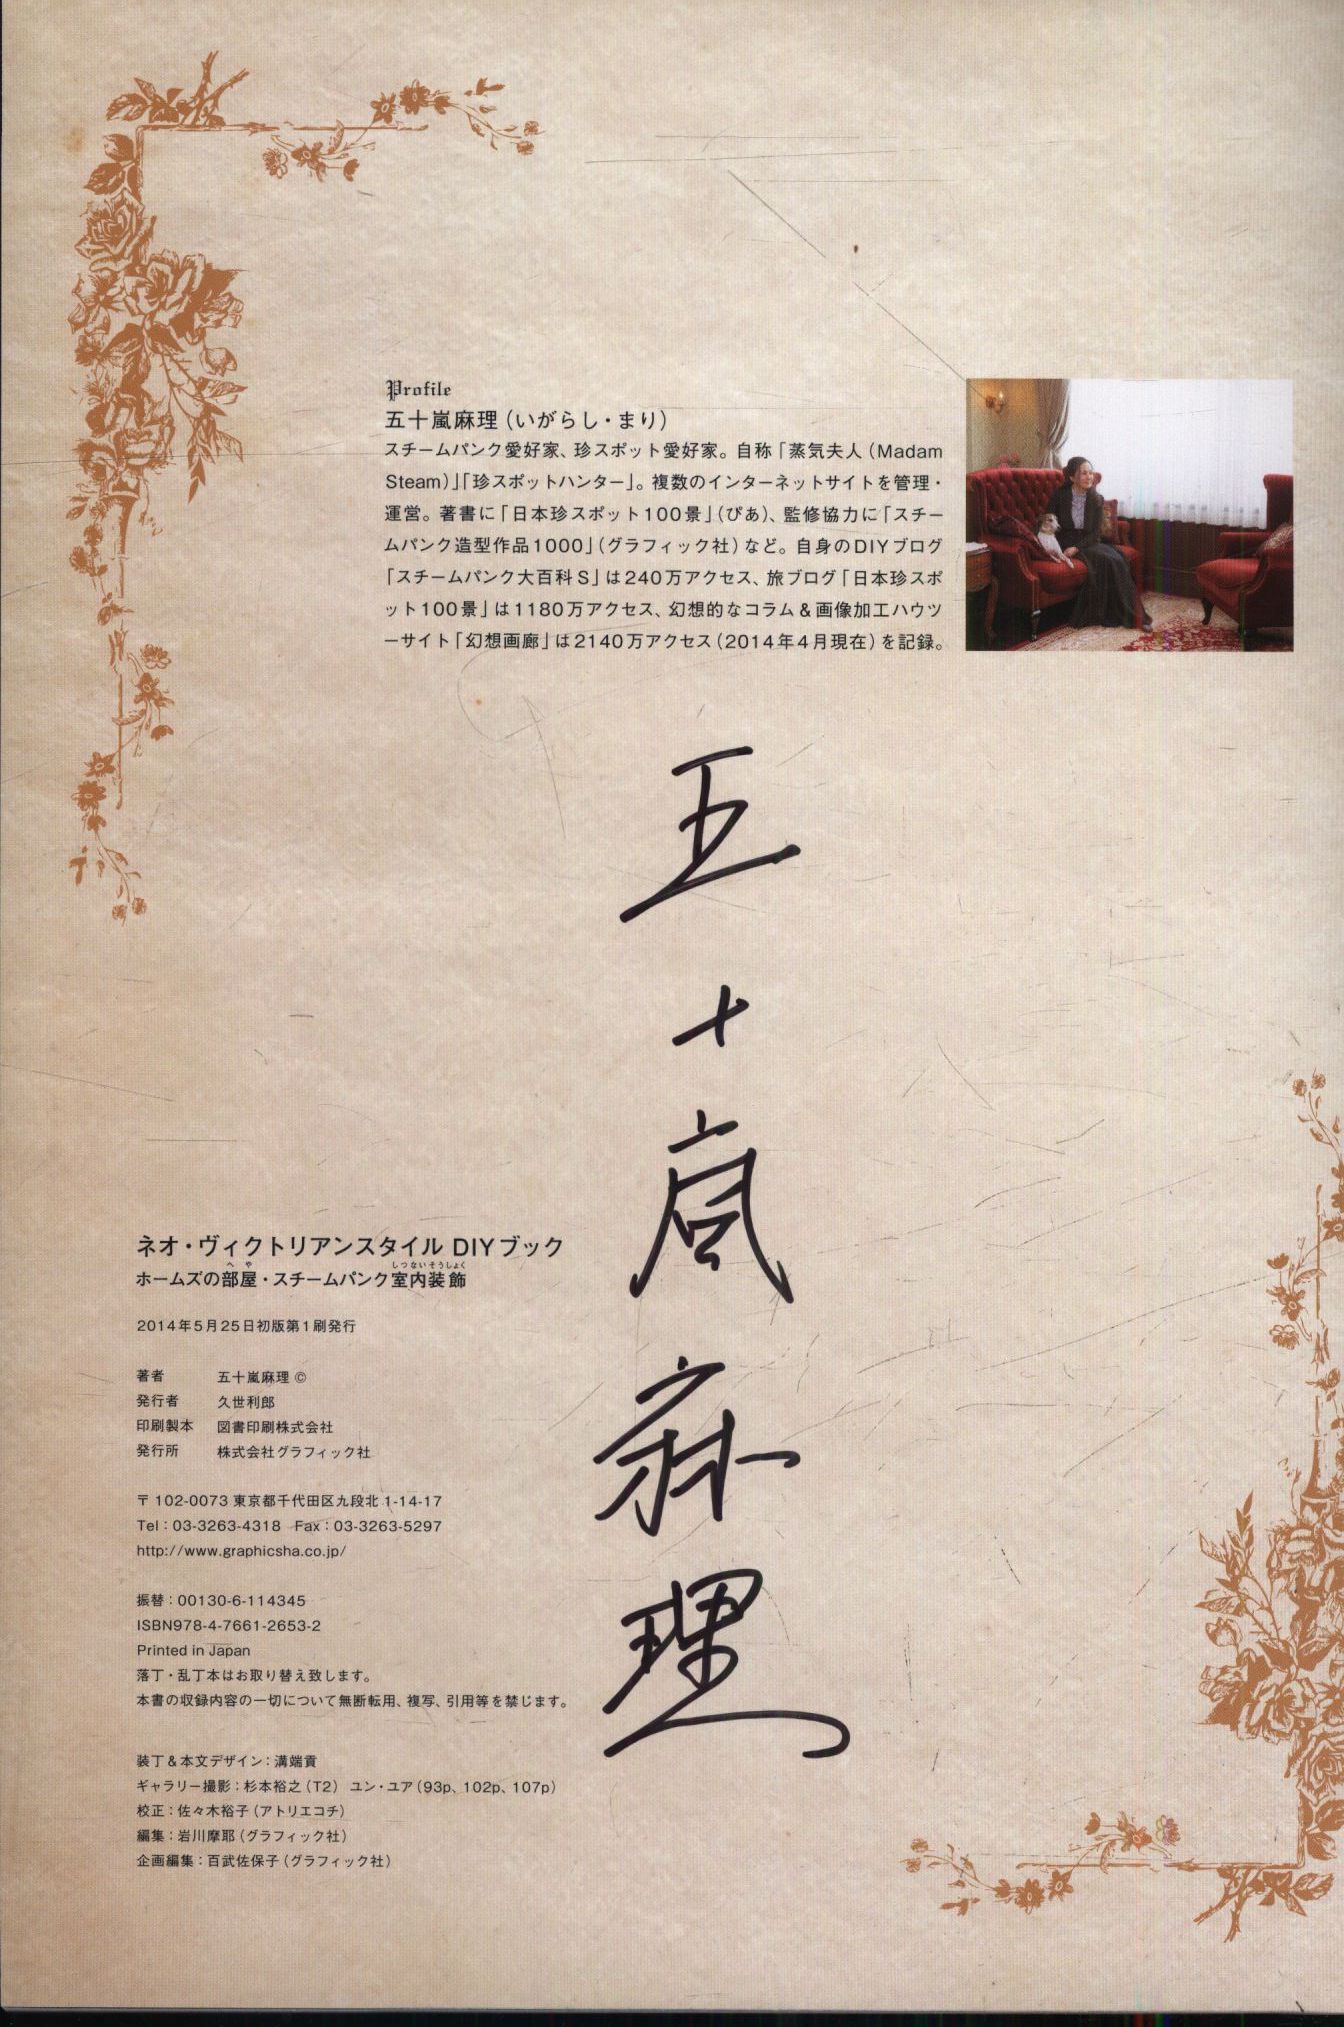 Profile
五十嵐麻理（いがらし・まり）
スチームパンク愛好家、珍スポット愛好家。自称「蒸気夫人（Madam
Steam）」「珍スポットハンター」。複数のインターネットサイトを管理・
運営。著書に「日本珍スポット100景」（ぴあ）、監修協力に「スチー
ムパンク造型作品1000」（グラフィック社）など。自身のDIYブログ
「スチームパンク大百科S」は240万アクセス、旅ブログ「日本珍スポ
ット100景」は1180万アクセス、幻想的なコラム＆画像加工ハウツ
ーサイト「幻想画廊」は2140万アクセス（2014年4月現在）を記録。
五十嵐麻理
ネオ・ヴィクトリアンスタイル DIYブック
へや しつないそうしょく
ホームズの部屋・スチームパンク室内装飾
2014年5月25日初版第1刷発行
著者 五十嵐麻理 ©
発行者 久世利郎
印刷製本 図書印刷株式会社
発行所 株式会社グラフィック社
〒102-0073 東京都千代田区九段北 1-14-17
Tel：03-3263-4318 Fax：03-3263-5297
http://www.graphicsha.co.jp/
振替：00130-6-114345
ISBN978-4-7661-2653-2
Printed in Japan
落丁・乱丁本はお取り替え致します。
本書の収録内容の一切について無断転用、複写、引用等を禁じます。
装丁＆本文デザイン：溝端貢
ギャラリー撮影：杉本裕之（T2） ユン・ユア（93p、102p、107p）
校正：佐々木裕子（アトリエコチ）
編集：岩川摩耶（グラフィック社）
企画編集：百武佐保子（グラフィック社）